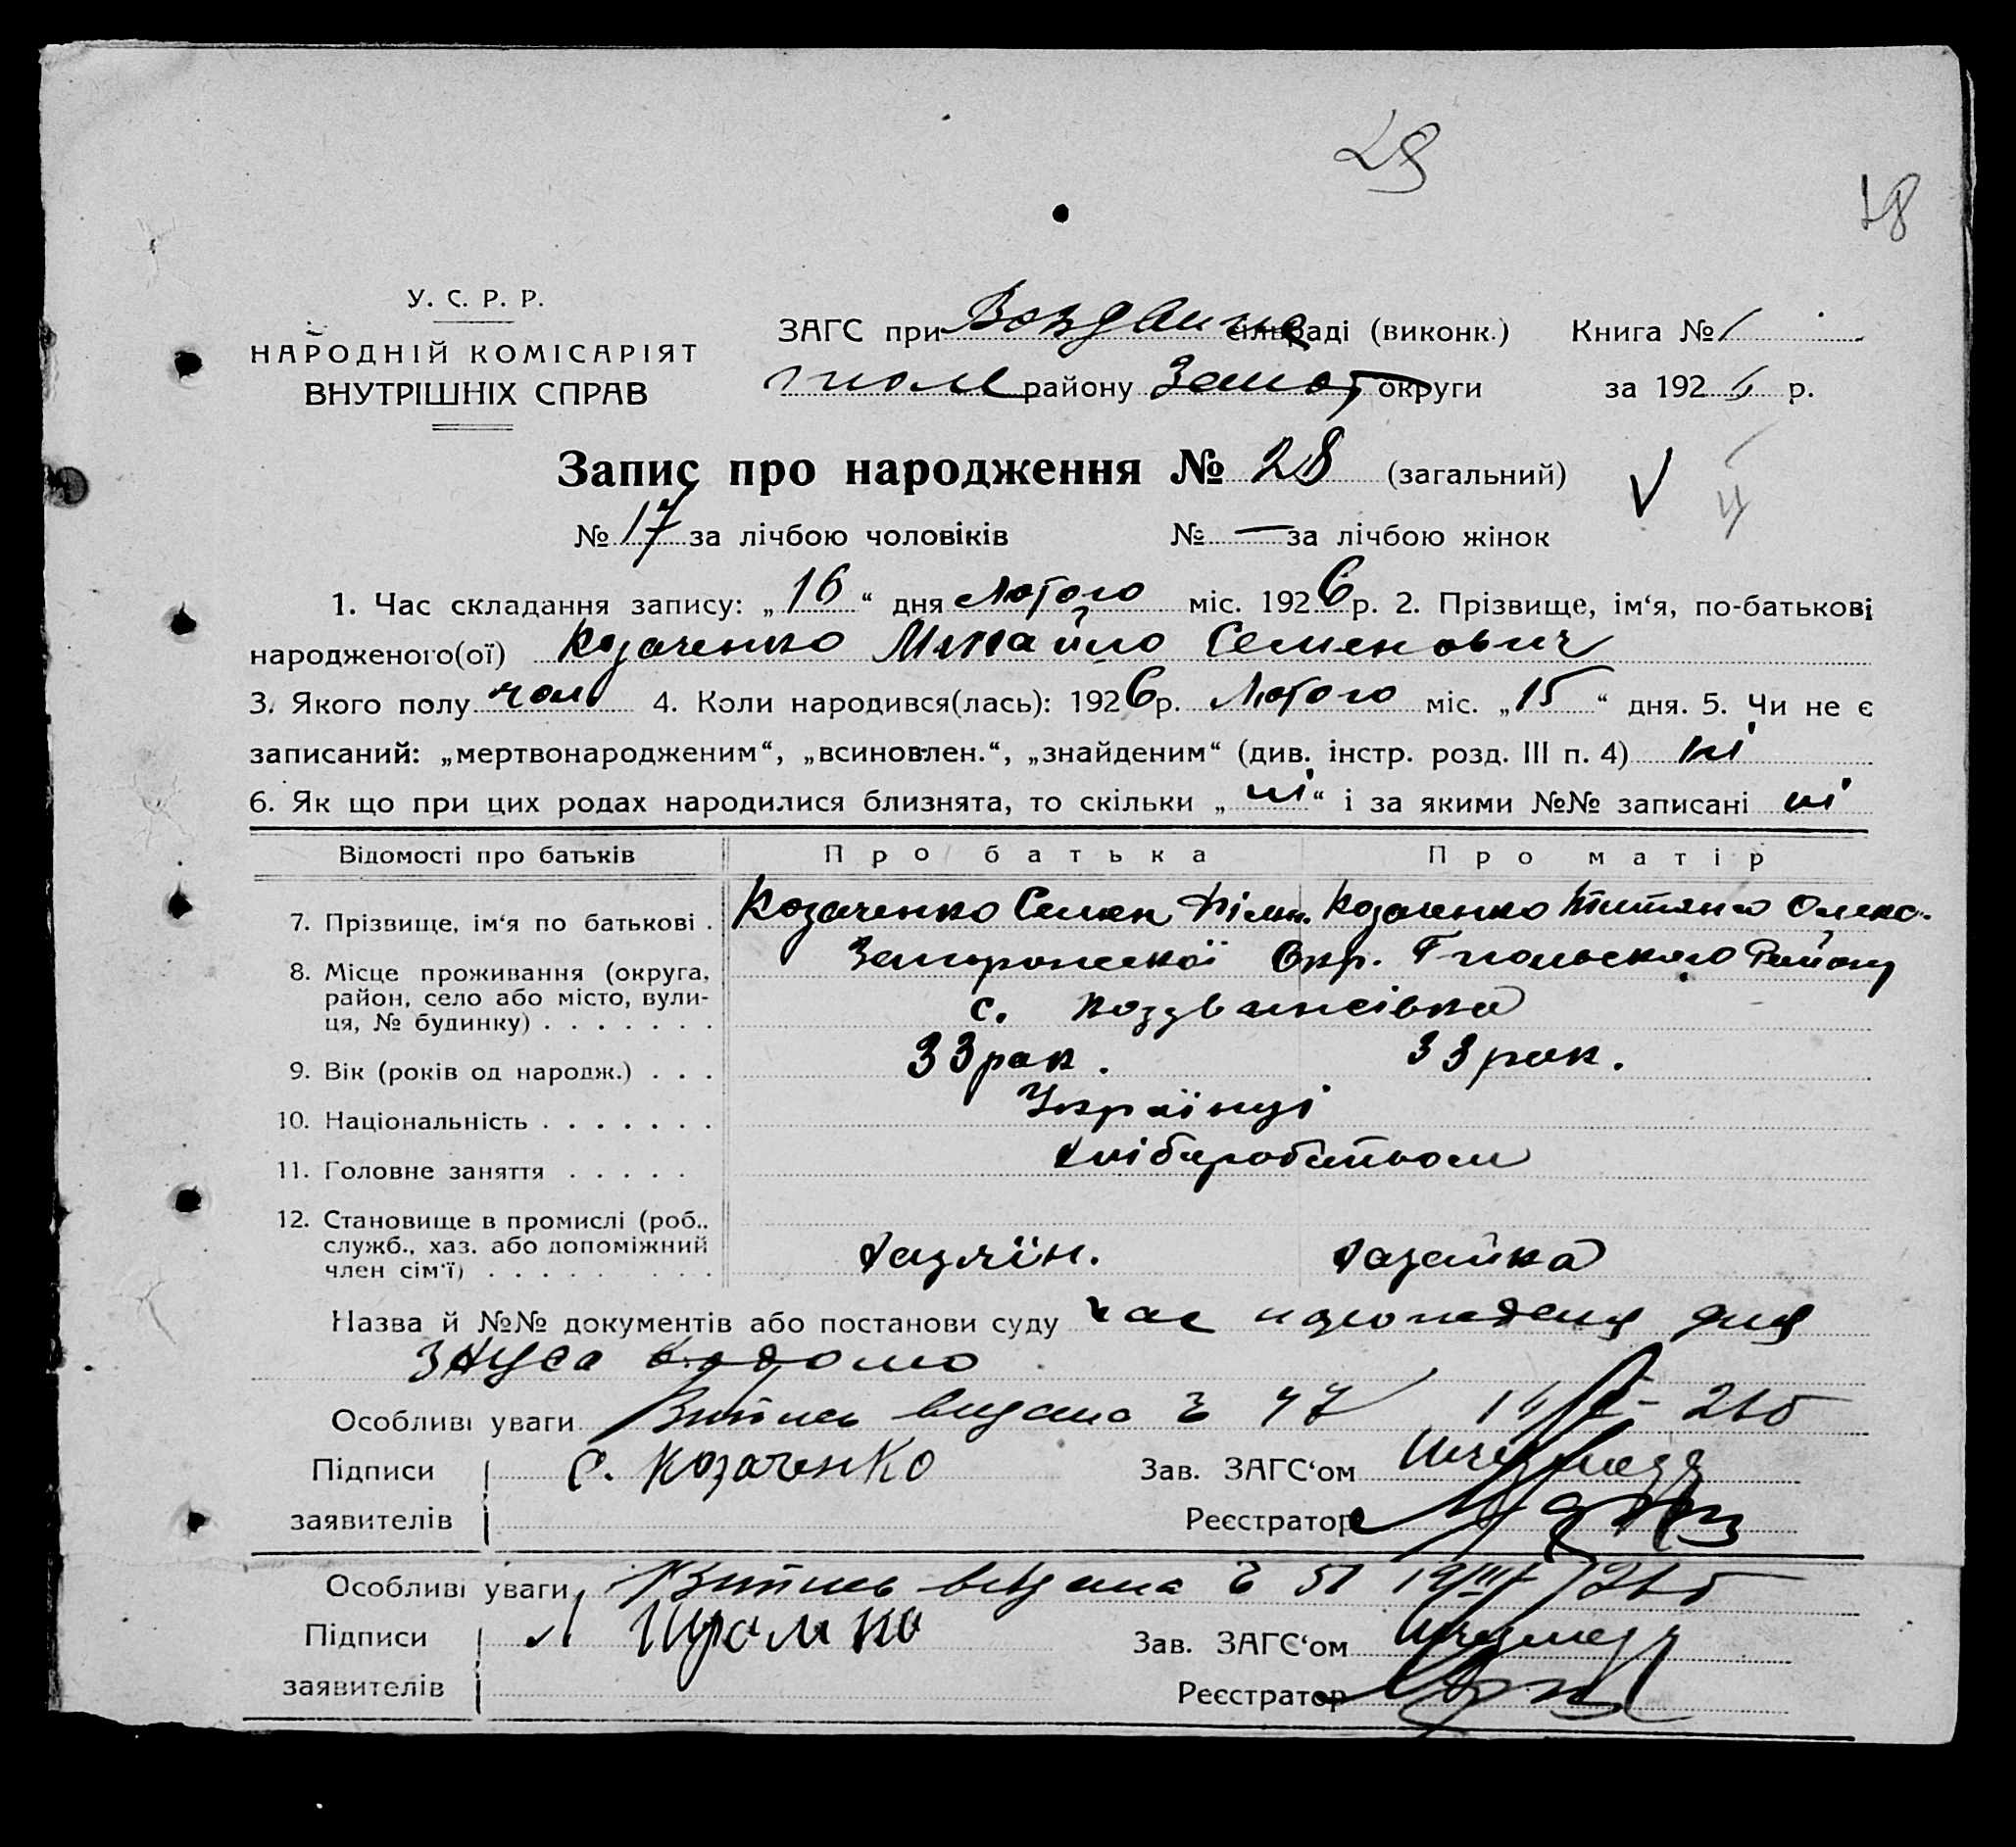 28
18
У. С. Р. Р.
НАРОДНІЙ КОМІСАРІЯТ
ВНУТРІШНІХ СПРАВ
ЗАГС при Воздви сільраді (виконк.) Книга № 1
району Запор округи за 1926 р.
Запис про народження № 28 (загальний)
№ 17 за лічбою чоловіків № — за лічбою жінок
1. Час складання запису: „16“ дня Лютого міс. 1926 р. 2. Прізвище, ім‘я, по-батькові
народженого(ої) Козаченко Михайло Семенович
3. Якого полу чол 4. Коли народився(лась): 1926 р. Лютого міс. „15“ дня. 5. Чи не є
записаний: „мертвонародженим“, „всиновлен.“, „знайденим“ (див. інстр. розд. III п. 4) ні
6. Як що при цих родах народилися близнята, то скільки „ні“ і за якими №№ записані ні
Відомості про батьків Про батька Про матір
7. Прізвище, ім‘я по батькові . Козаченко Семен Козаченко Титяна Олекс.
8. Місце проживання (округа, Запорожської Окр. Гюльського Району
район, село або місто, вули-
ця, № будинку) . . . . . . . с. Воздвиженівка
9. Вік (років од народж.) . . . 33 рок. 33 рок.
10. Національність . . . . . . . Українці
11. Головне заняття . . . . . хліборобством
12. Становище в промислі (роб.,
служб., хаз. або допоміжний
член сім‘ї) . . . . . . . . Хазяїн. Хазяйка
Назва й №№ документів або постанови суду
ЗАГСа
Особливі уваги Витпись видана № 47
Підписи С. Козаченко Зав. ЗАГС‘ом
заявителів Реєстратор
Особливі уваги Витпись видана № 51
Підписи Зав. ЗАГС‘ом
заявителів Реєстратор